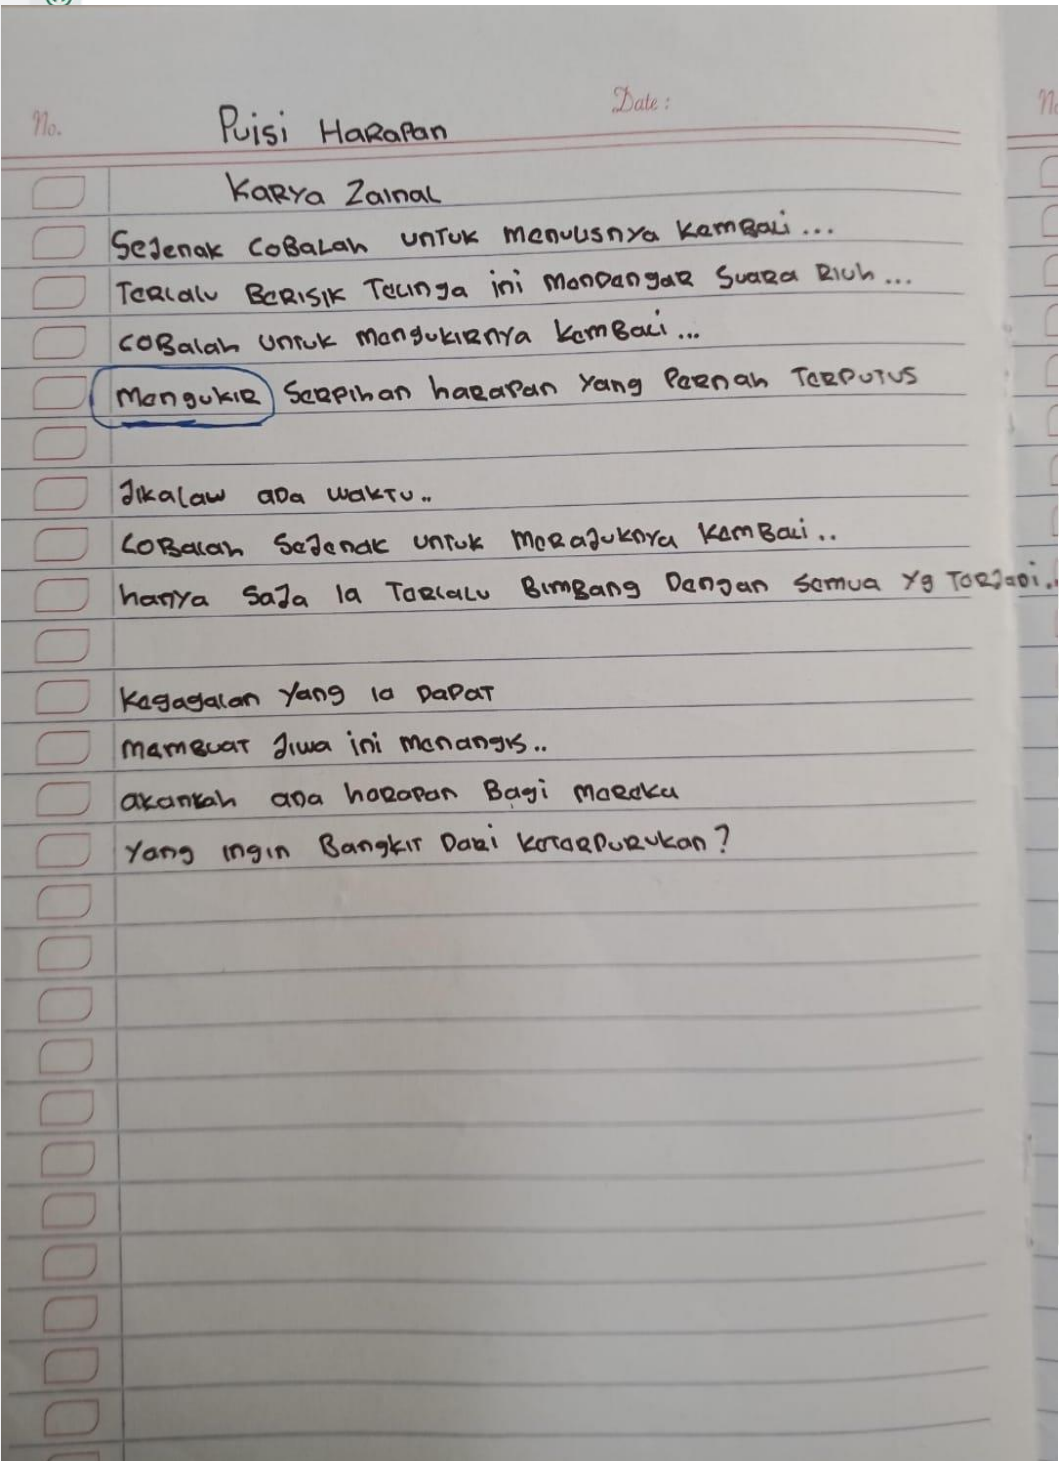 No.
Date:
Puisi Harapan
Karya Zainal
Sejenak cobalah untuk menulisnya kembali...
Terlalu berisik telinga ini mendengar suara riuh...
cobalah untuk mengukirnya kembali...
mengukir serpihan harapan yang pernah terputus
Jikalaw ada waktu..
cobalah sejenak untuk merajuknya kembali..
hanya saja ia terlalu bimbang dengan semua yg terjadi..
kegagalan yang ia dapat
membuat jiwa ini menangis..
akankah ada harapan bagi mereka
yang ingin bangkit dari keterpurukan?